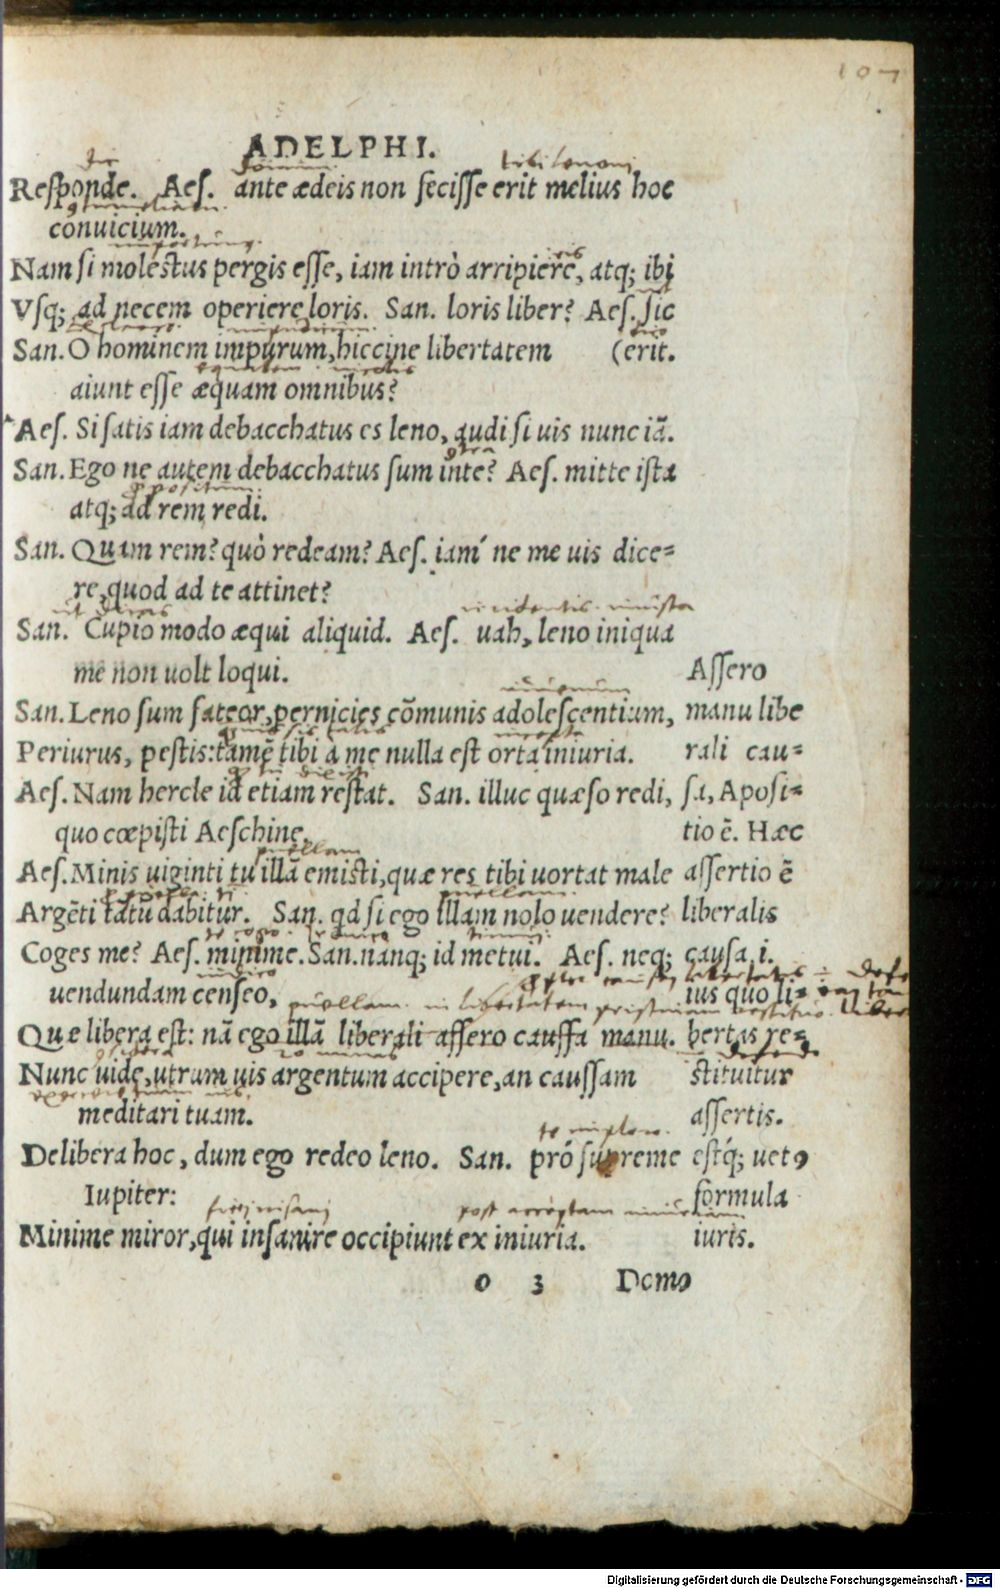 107
ADELPHI.
Responde. Aes. ante ædeis non fecisse erit melius hoc
conuicium.
Nam si molestus pergis esse, iam intrò arripiere, atq; ibi
Vsq; ad necem operiere loris. San. loris liber? Aes. sic
San. O hominem impurum, hiccine libertatem (erit.
aiunt esse æquam omnibus?
Aes. Si satis iam debacchatus es leno, audi si uis nunc iā.
San. Ego ne autem debacchatus sum inte? Aes. mitte ista
atq; ad rem redi.
San. Quam rem? quò redeam? Aes. iam ne me uis dice=
re, quod ad te attinet?
San. Cupio modo æqui aliquid. Aes. uah, leno iniqua
me non uolt loqui.
San. Leno sum fateor, pernicies cōmunis adolescentium,
Periurus, pestis: tamē tibi a me nulla est orta iniuria.
Aes. Nam hercle id etiam restat. San. illuc quæso redi,
quo cœpisti Aeschine.
Aes. Minis uiginti tu illā emisti, quæ res tibi uortat male
Argēti tātū dabitur. San. qd si ego illam nolo uendere?
Coges me? Aes. minime. San. nanq; id metui. Aes. neq;
uendundam censeo,
Quæ libera est: nā ego illā liberali assero caussa manu.
Nunc uide, utrum uis argentum accipere, an caussam
meditari tuam.
Delibera hoc, dum ego redeo leno. San. prô supreme
Iupiter:
Minime miror, qui insanire occipiunt ex iniuria.
Assero
manu libe
rali cau=
sa, Aposi=
tio ē. Hæc
assertio ē
liberalis
causa .i.
ius quo li=
bertas re=
stituitur
assertis.
estq́; uetꝰ
formula
iuris.
o 3 Demo
Digitalisierung gefördert durch die Deutsche Forschungsgemeinschaft - DFG